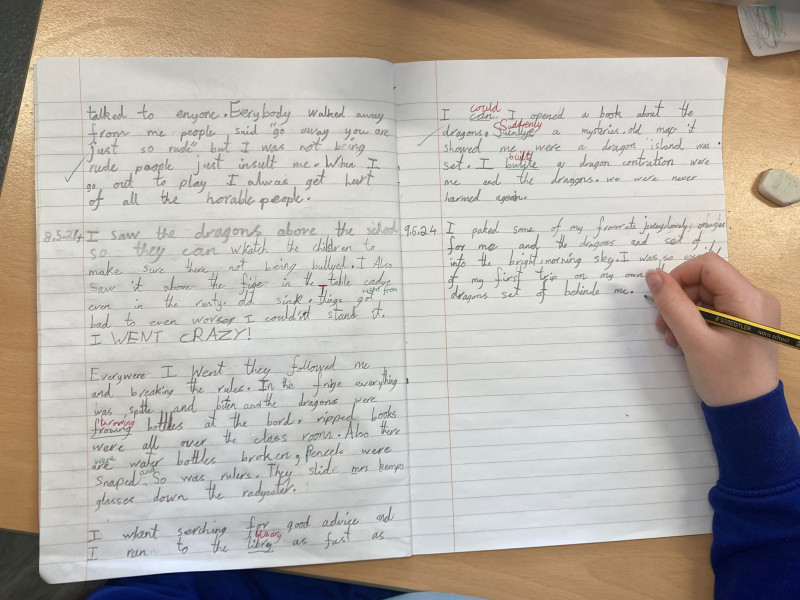 talked to enyone. Everybody walked away
from me people said "go away you are
just so rude" but I was not being
rude people just insult me. When I
go out to play I alwas get hurt
of all the horable people.
8.5.24 I saw the dragons above the school
so they can whatch the children to
make sure there not being bullyed. I Also
saw it above the fige in the table cadge
even in the rusty old sink. Things got
right from
bad to even worser I could'nt stand it.
I WENT CRAZY!
Everywere I went they followed me
and breaking the rules. In the frige everything
was spilte and biten and the dragons were
throwing
frowing bottles at the bord. ripped books
were all over the class room. Also there
were
are water bottles broken, Pencels were
snaped and So was rulers. They slide mrs kemps
glasses down the radyeater.
I whent serching for good advice and
library
I ran to the libry as fast as
could
I can. I opened a book about the
Suddenly
dragons. a mysteries old map it
showed me were a dragon island was
built
set. I a dragon contration were
me and the dragons. we were never
harmed again.
9.5.24 I paked some of my
for me and the dragons and set of
into the bright morning sky. I was so
of my first trip on my own
dragons set of behinde me.
STAEDTLER